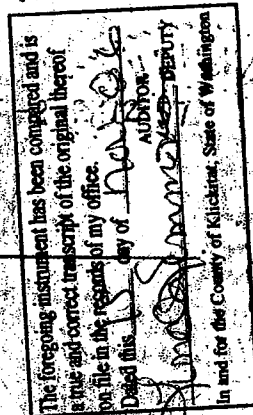 The foregoing instrument has been compared and is
a true and correct transcript of the original thereof
on file in the records of my office.
Dated this day of
AUDITOR
DEPUTY
In and for the County of Klickitat, State of Washington